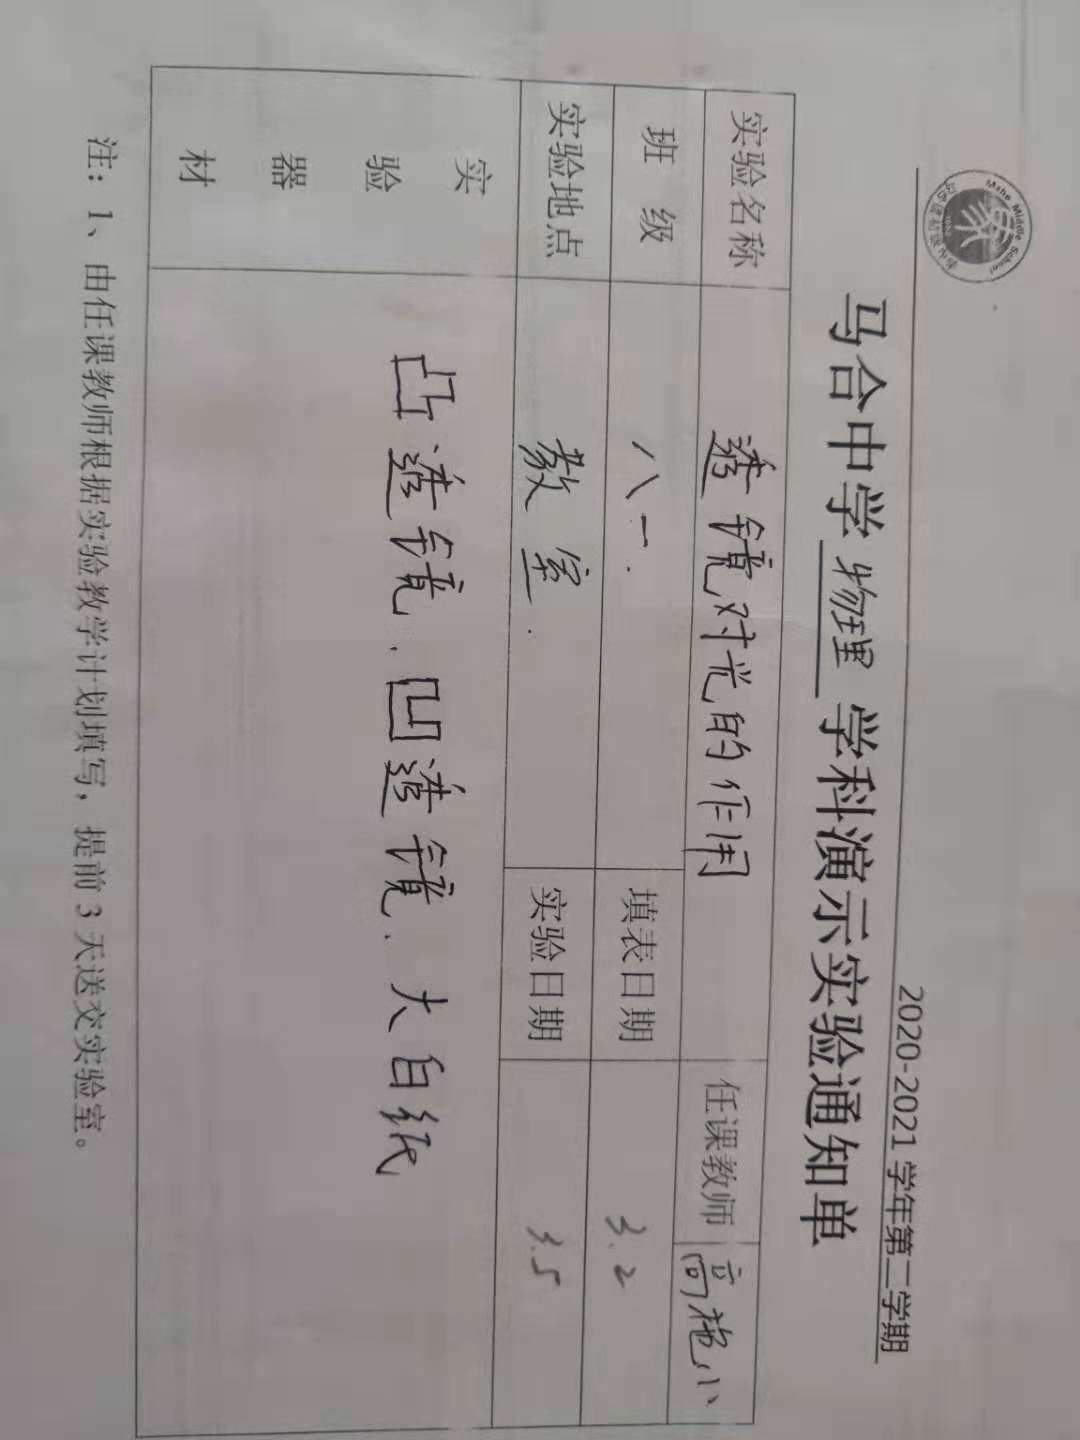 Mahe Middle School
2020-2021 学年第二学期
马合中学 物理 学科演示实验通知单
实验名称 透镜对光的作用 任课教师 高艳小
班 级 八一. 填表日期 3.2
实验地点 教室. 实验日期 3.5
实
验
器
材
凸透镜、凹透镜、大白纸
注：1、由任课教师根据实验教学计划填写，提前 3 天送交实验室。